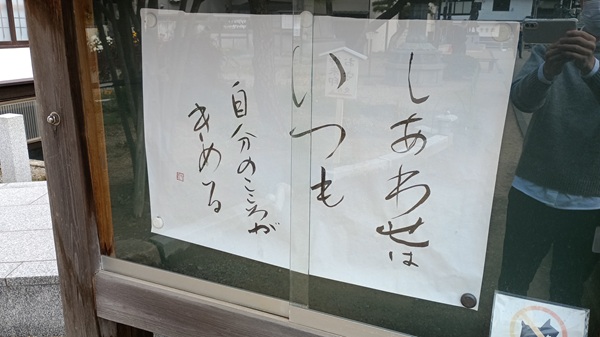 しあわせは
いつも
自分のこころが
きめる